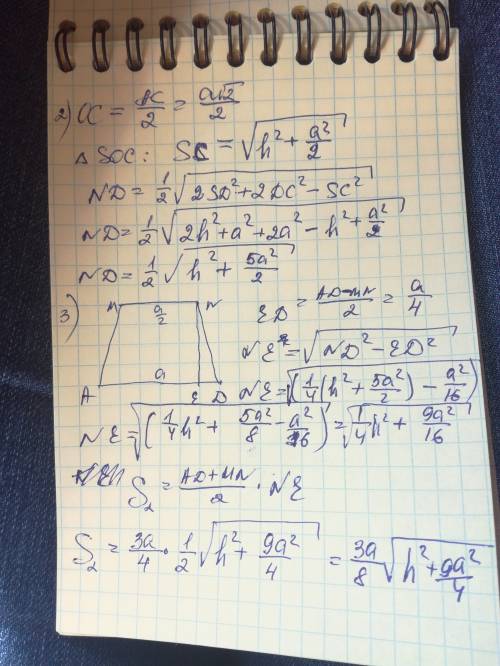 2) OC = AC/2 = a√2/2
△ SOC: SC = √(h² + a²/2)
ND = 1/2 √(2SD² + 2DC² − SC²)
ND = 1/2 √(2h² + a² + 2a² − h² + a²/2)
ND = 1/2 √(h² + 5a²/2)
3) M a/2 N
A a E D
ED = AD−MN/2 = a/4
NE² = √(ND² − ED²)
NE = √(1/4(h² + 5a²/2) − a²/16)
NE = √(1/4h² + 5a²/8 − a²/16) = √(1/4h² + 9a²/16)
S₂ = AD+MN/2 · NE
S₂ = 3a/4 · 1/2 √(h² + 9a²/4) = 3a/8 √(h² + 9a²/4)